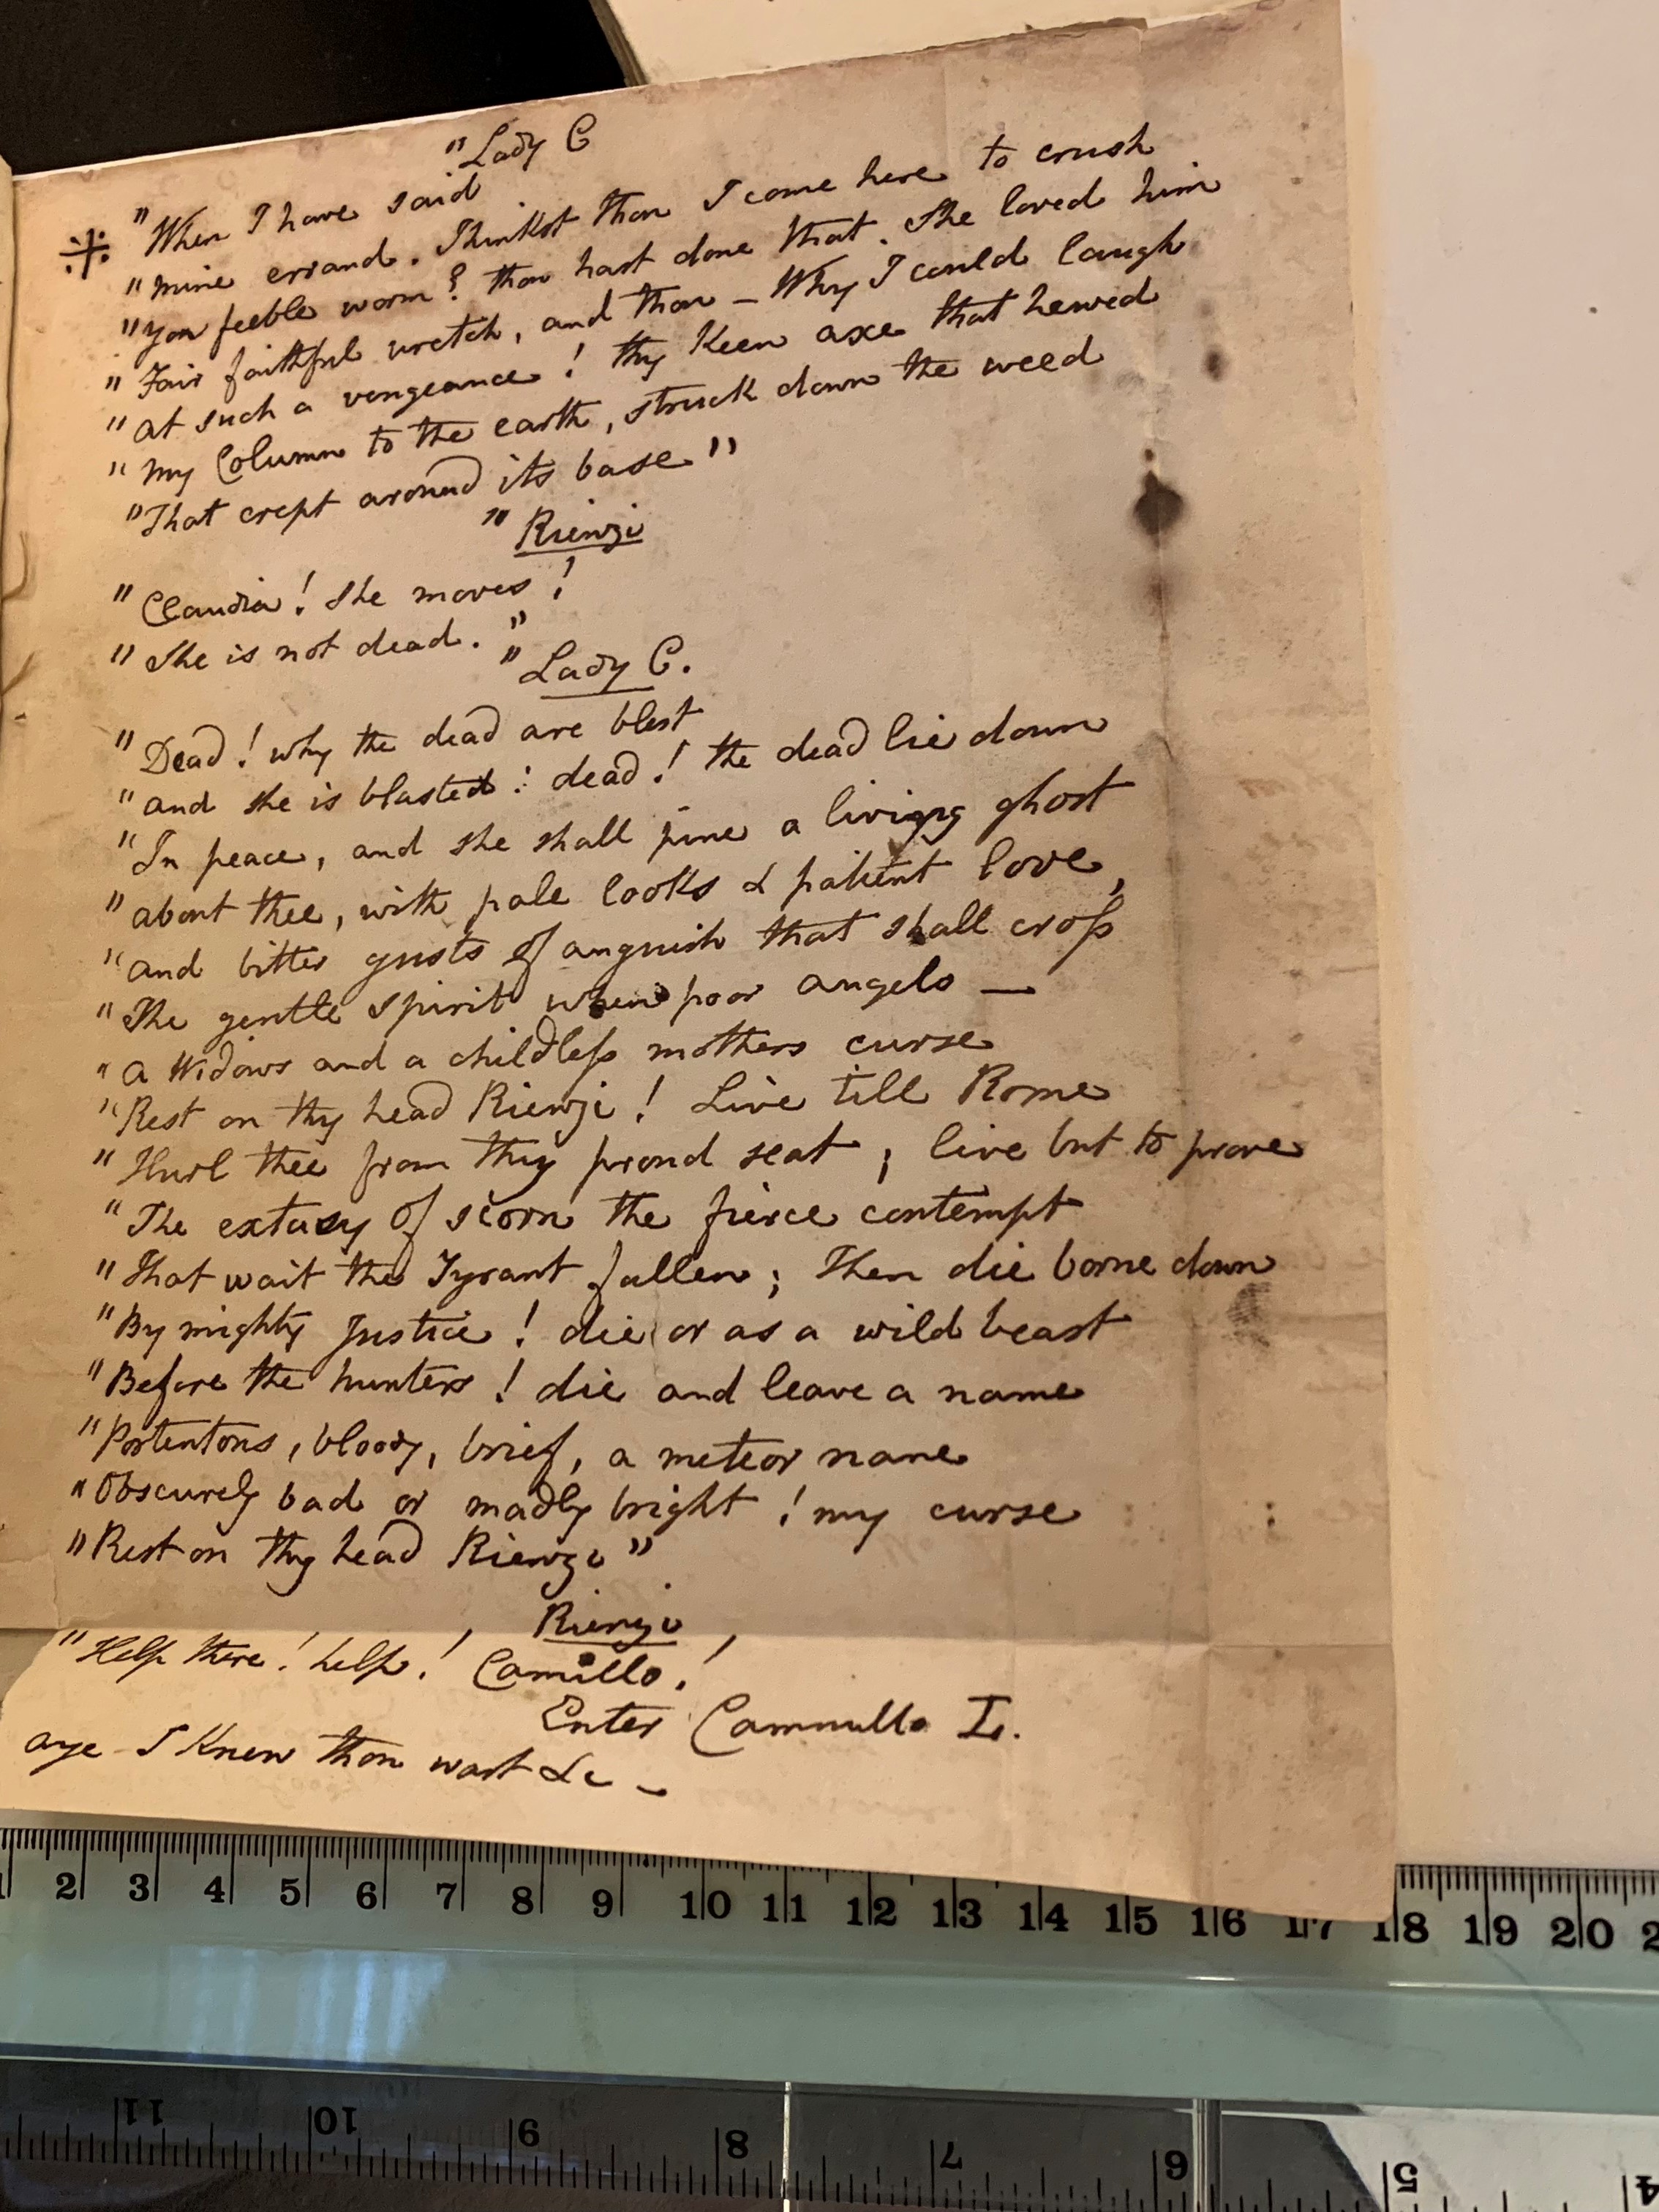 "Lady C
"When I have said
"mine errand. Thinkst thou I come here to crush
"yon feeble worm? thou hast done that. She loved him
"Fair faithful wretch, and thou — Why I could laugh
"at such a vengeance! thy Keen axe that hewed
"my Column to the earth, struck down the weed
"That crept around its base"
"Rienzi
"Claudia! She moves!
"She is not dead."
"Lady C.
"Dead! why the dead are blest
"and she is blasted: dead! the dead lie down
"In peace, and she shall pine a living ghost
"about thee, with pale looks & patient love,
"and bitter gusts of anguish that shall cross
"The gentle spirit when poor angelo —
"a Widows and a childless mothers curse
"Rest on thy head Rienzi! Live till Rome
"Hurl thee from thy proud seat; live but to prove
"The extasy of scorn the fierce contempt
"That wait the Tyrant fallen; Then die borne down
"By mighty Justice! die or as a wild beast
"Before the hunters! die and leave a name
"Portentous, bloody, brief, a meteor name
"Obscurely bad or madly bright! my curse
"Rest on thy head Rienzi"
Rienzi
"Help there! help! Camillo!
Enter Cammullo L.
aye I Knew thou wast &c —
1 2 3 4 5 6 7 8 9 10 11 12 13 14 15 16 17 18 19 20 2
11 10 9 8 7 6 5 4